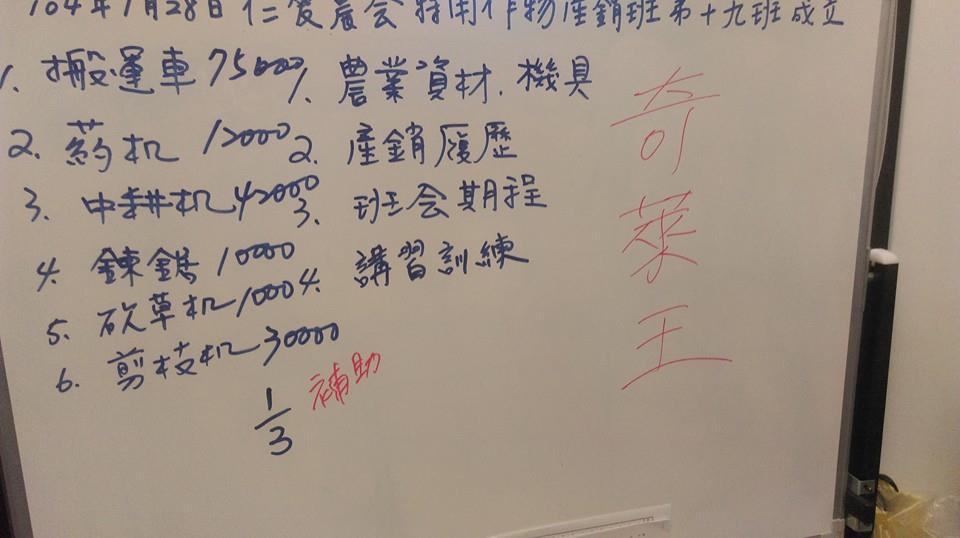 104年1月28日仁愛農会特用作物產銷班第十九班成立
1. 搬運車 75000
2. 葯机 12000
3. 中耕机 42000
4. 鍊鋸 10000
5. 砍草机 1000
6. 剪枝机 30000
1/3 補助
1. 農業資材.機具
2. 產銷履歷
3. 班会期程
4. 講習訓練
奇
萊
王